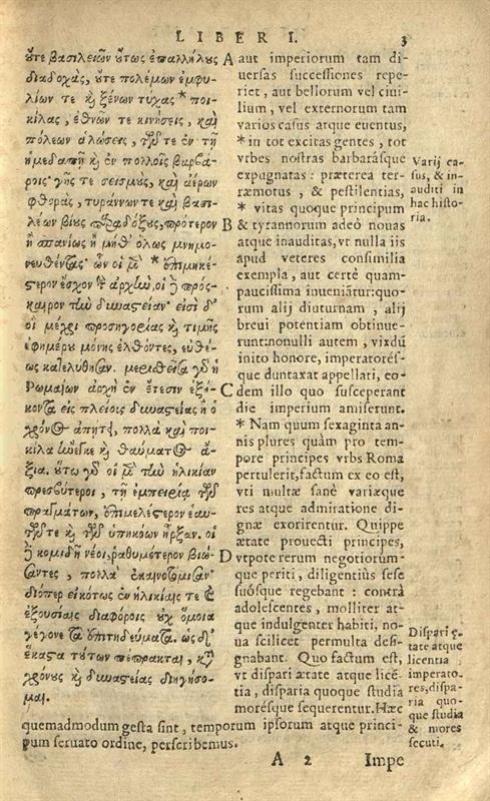 LIBER I. 3
ὔτε βασιλειῶν ὕτως ἐπαλλήλυς
διαδοχὰς, ὔτε πολέμων ἐμφυ-
λίων τε κὴ ξένων τύχας * ποι-
κίλας, ἐθνῶν τε κινήσεις, καὶ
πόλεων ἁλώσεις, τῆς τε ἐν τῇ
ἡμεδαπῇ κὴ ἐν πολλοῖς βαρβά-
ροις· γῆς τε σεισμὺς, καὶ ἀέρων
φθορὰς, τυράννων τε καὶ βασι-
λέων βίυς παραδόξυς, πρότερον
ἢ σπανίως ἢ μηδ᾽ ὅλως μνημο-
νευθέντας· ὧν οἱ μὲν * ἐπιμηκέ-
στερον ἔσχον τὴν ἀρχὴν, οἱ ἢ πρόσ-
καιρον τὴν δυναστείαν· εἰσὶ δ᾽
οἱ μέχρι προσηγορίας κὴ τιμῆς
ἐφημέρυ μόνης ἐλθόντες, εὐθέ-
ως κατελύθησαν. μερισθεῖσα γὰρ ἡ
Ῥωμαίων ἀρχὴ ἐν ἔτεσιν ἑξή-
κοντα εἰς πλείυς δυνάστας ἢ ὁ
χρόνος ἀπῄτει, πολλὰ καὶ ποι-
κίλα ἤνεγκε κὴ θαύματος ἄ-
ξια. ὕτω γὰρ οἱ μὲν τὴν ἡλικίαν
πρεσβύτεροι, τῇ ἐμπειρίᾳ τῶν
πραγμάτων, ἐπιμελέστερον ἑαυ-
τῶν τε κὴ τῶν ὑπηκόων ἦρξαν. οἱ
ἢ κομιδῇ νέοι, ῥαθυμότερον βιώ-
σαντες, πολλὰ ἐκαινοτόμησαν·
διόπερ εἰκότως ἐν ἡλικίαις τε κὴ
ἐξουσίαις διαφόροις ὐχ ὅμοια
γέγονε τὰ ἐπιτηδεύματα. ὡς δ᾽
ἕκαστα τύτων πέπρακται, κτ̀
χρόνυς κὴ δυναστείας διηγήσο-
μαι.
A aut imperiorum tam di-
uersas successiones repe-
riet, aut bellorum vel ciui-
lium, vel externorum tam
varios casus atque euentus,
* in tot excitas gentes, tot
vrbes nostras barbarásque
expugnatas: præterea ter-
ræmotus, & pestilentias,
* vitas quoque principum
B & tyrannorum adeò nouas
atque inauditas, vt nulla iis
apud veteres consimilia
exempla, aut certè quam-
paucissima inueniãtur: quo-
rum alij diuturnam, alij
breui potentiam obtinue-
runt: nonnulli autem, vixdũ
inito honore, imperatorés-
que duntaxat appellati, eo-
C dem illo quo susceperant
die imperium amiserunt.
* Nam quum sexaginta an-
nis plures quàm pro tem-
pore principes vrbs Roma
pertulerit, factum ex eo est,
vti multæ sanè variæque
res atque admiratione di-
gnæ exorirentur. Quippe
ætate prouecti principes,
D vtpote rerum negotiorúm-
que periti, diligentiùs sese
suósque regebant: contrà
adolescentes, molliter at-
que indulgenter habiti, no-
ua scilicet permulta desi-
gnabant. Quo factum est,
vt dispari ætate atque licẽ-
tia, disparia quoque studia
morésque sequerentur. Hæc
quemadmodum gesta sint, temporum ipsorum atque princi-
pum seruato ordine, perscribemus.
Varij ca-
sus, & in-
auditi in
hac histo-
ria.
Dispari ę-
tate atque
licentia
imperato-
res, dispa-
ria quo-
que studia
& mores
secuti.
A 2 Impe